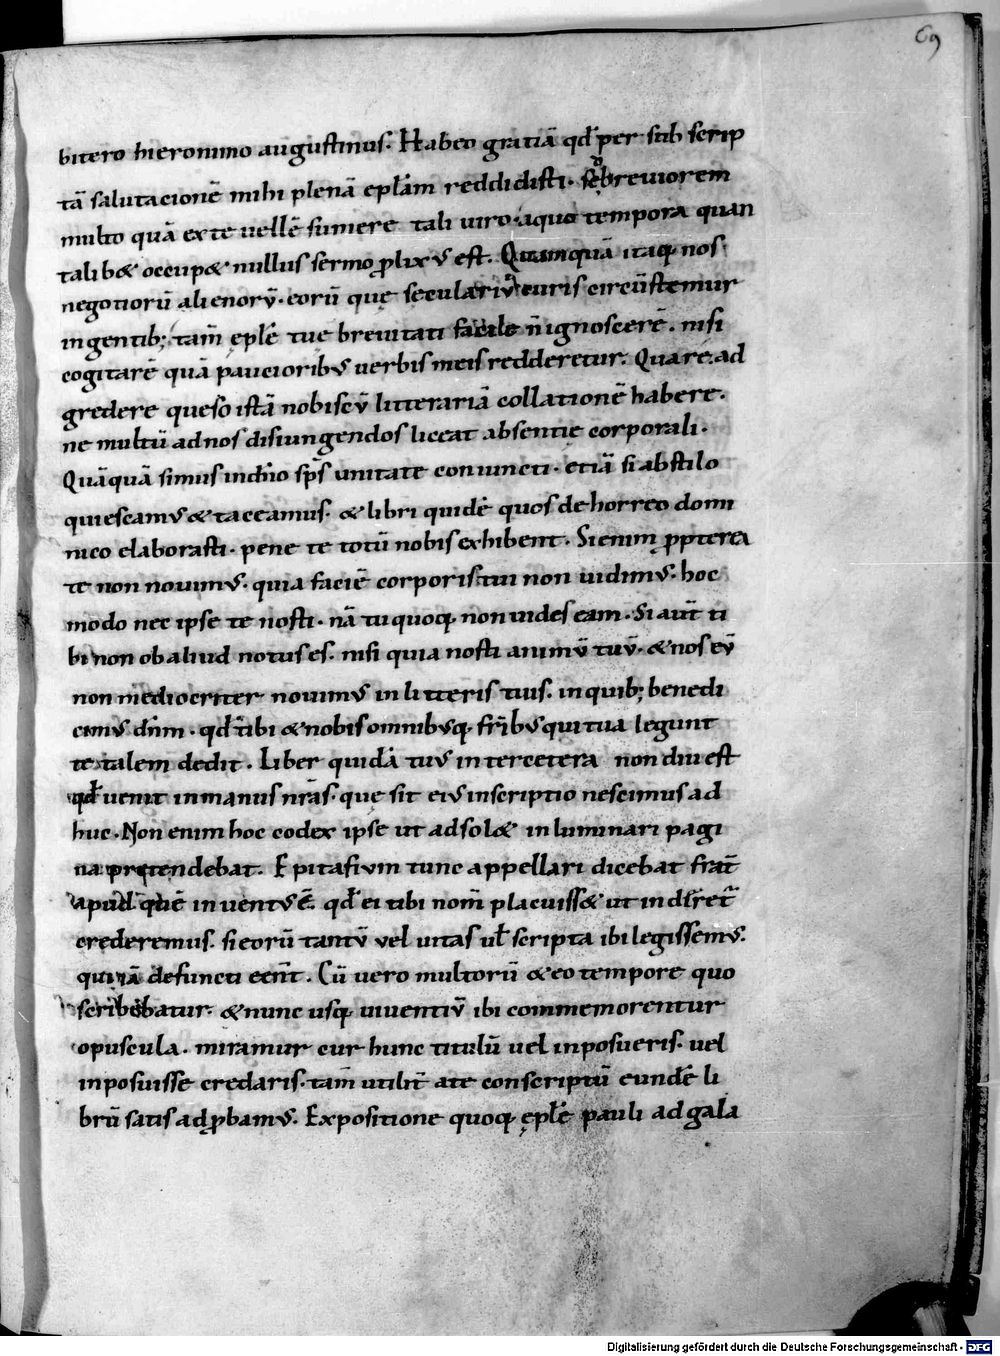 69
bitero hieronimo augustinus. Habeo gratiā qđ per sub scrip
tā salutacionē mihi plenā epłam reddidisti. sꝫ breuiorem
multo quā ex te uellē sumere tali uiro. a quo tempora quan
talibꝫ occupꝫ nullus sermo ꝓlixꝰ est. Quamquā itaqꝫ nos
negotiorū alienorū. eorū quę seculariū curis circūstemur
ingentibꝫ; tam̄ ępłę tue breuitati facile n̄ ignoscerē. nisi
cogitarē quā paucioribꝰ uerbis meis redderetur. Quare ad
gredere queso istā nobiscū litterariā collationē habere.
ne multū ad nos disiungendos liceat absentię corporali.
Quāquā simus in dn̄o sps̄ unitate coniuncti. etiā si ab stilo
quiescamꝰ & taceamus. & libri quidē quos de horreo domi
nico elaborasti. pene te totū nobis exhibent. Si enim ꝓpterea
te non nouimꝰ. quia faciē corporis tui non uidimꝰ. hoc
modo nec ipse te nosti. nā tu quoqꝫ non uides eam. Si aut̄ ti
bi non ob aliud notus es. nisi quia nosti animū tuū. & nos eū
non mediocriter nouimꝰ in litteris tuis. in quibꝫ; benedi
cimꝰ dn̄m. qđ tibi & nobis omnibꝰqꝫ fr̄ibꝰ qui tua legunt
te talem dedit. Liber quidā tuꝰ inter cetera non diu est
qđ uenit in manus nr̄as. quę sit eiꝰ inscriptio nescimus ad
huc. Non enim hoc codex ipse ut ad sol& in luminari pagi
na prętendebat. Epitafium tunc appellari dicebat frat̄
apud quē inuentꝰ ē. qđ ei tibi nom̄ placuiss& ut indi͞ret͞
crederemus. si eorū tantū uel uitas ul̄ scripta ibi legissemꝰ.
qui iā defuncti eēnt. Cū uero multorū & eo tempore quo
scribebatur. & nunc usqꝫ uiuentiū ibi commemorentur
opuscula. miramur cur hunc titulū uel inposueris. uel
inposuisse credaris. tam̄ utilit̄ a te conscriptū eundē li
brū satis adꝓbamꝰ. Expositione quoqꝫ ępłę pauli ad gala
Digitalisierung gefördert durch die Deutsche Forschungsgemeinschaft - DFG